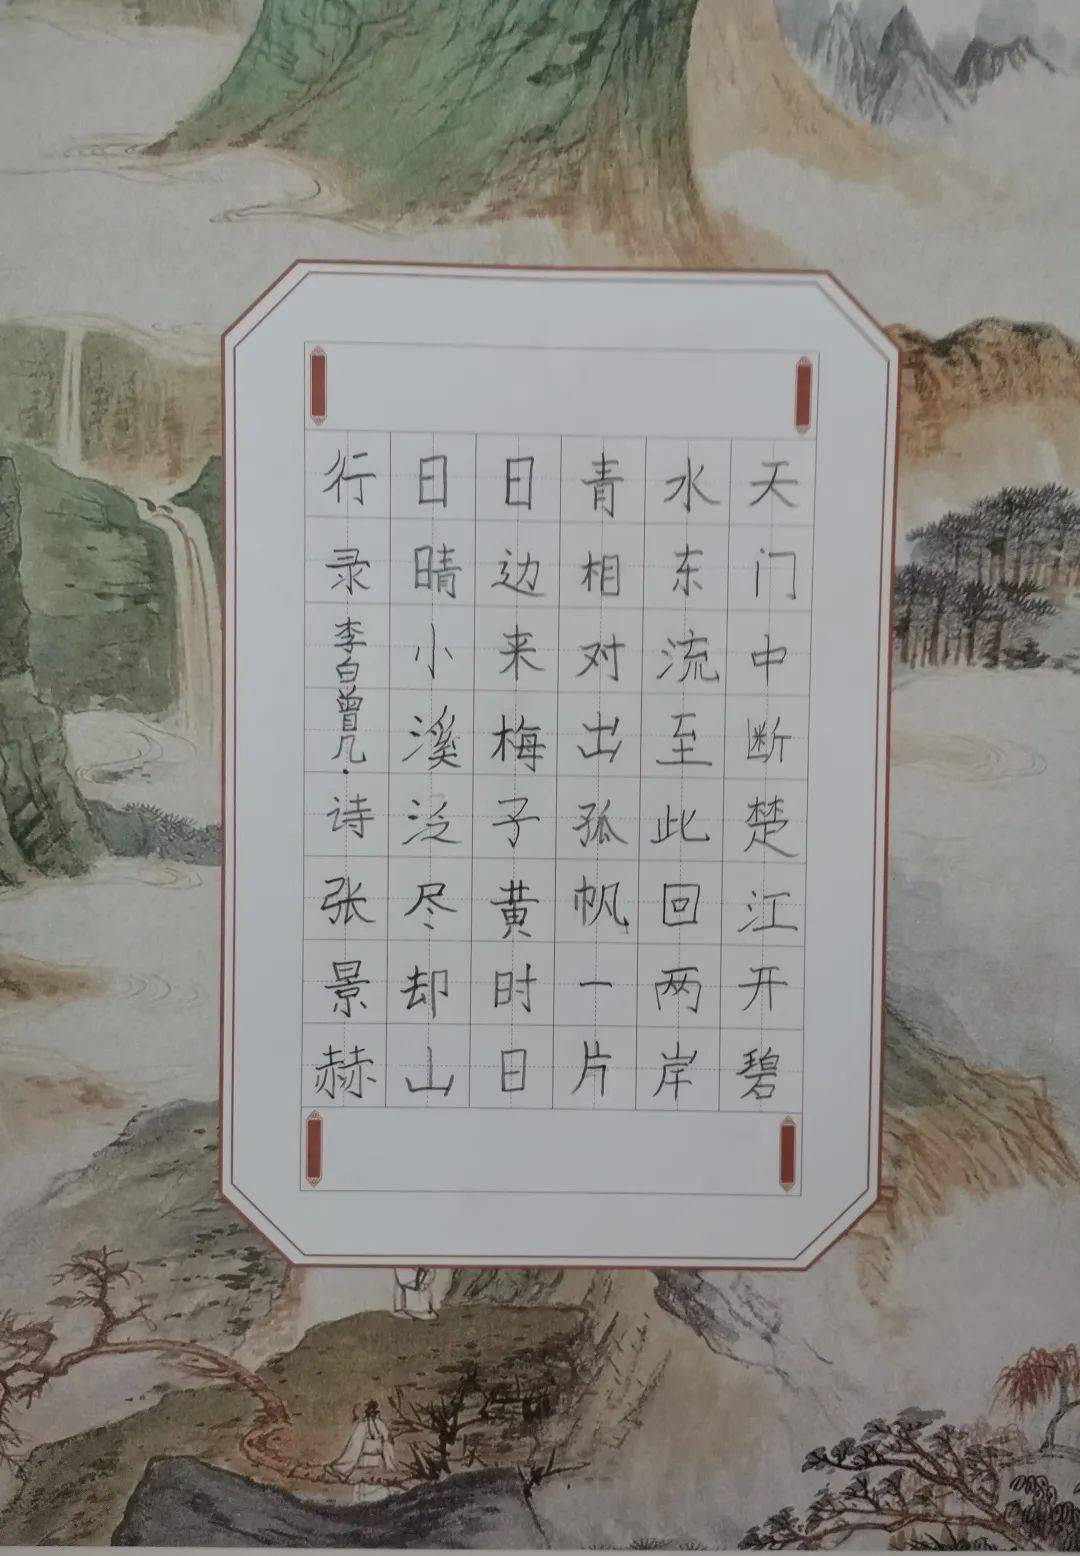 天门中断楚江开碧
水东流至此回两岸
青相对出孤帆一片
日边来梅子黄时日
日晴小溪泛尽却山
行录李白曾几·诗张景赫